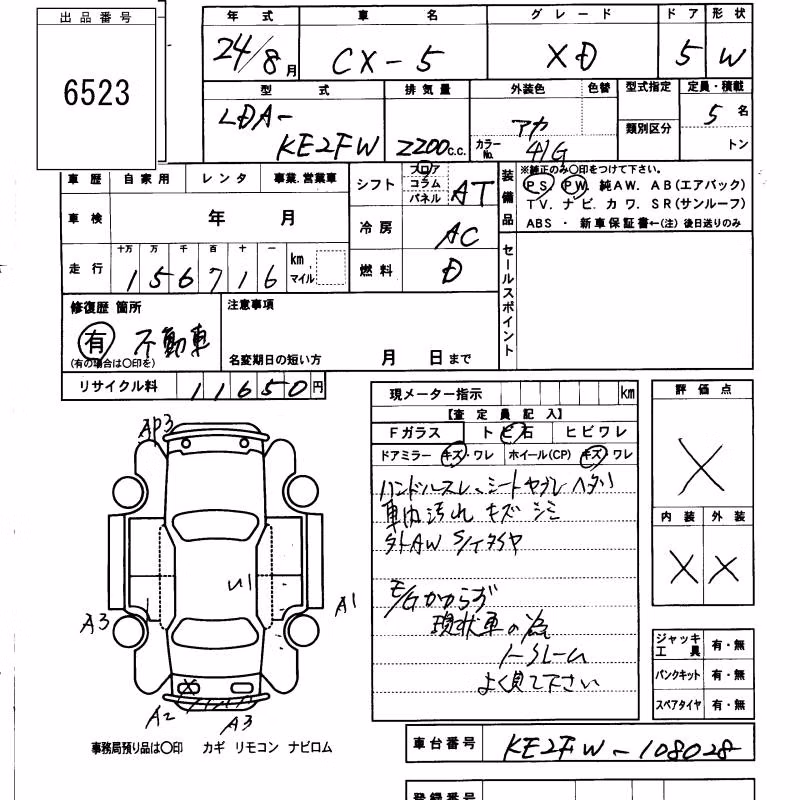 出品番号
6523
年式 車名 グレード ドア 形状
24/8月 CX-5 XD 5 W
型式 排気量 外装色 色替 型式指定 定員・積載
LDA-
KE2FW 2200c.c. アカ カラーNo. 41G 類別区分 5名
トン
車歴 自家用 レンタ 事業.営業車
シフト フロア コラム パネル AT
装備品 ※純正のみ〇印をつけて下さい。
PS PW. 純AW. AB(エアバック)
TV. ナビ. カワ. SR(サンルーフ)
ABS ・ 新車保証書←(注)後日送りのみ
車検 年 月
冷房 AC
走行 十万 万 千 百 十 一
156716 km マイル
燃料 D
セールスポイント
修復歴 箇所
有 不動車
(有の場合は〇印を)
注意事項
名変期日の短い方 月 日まで
リサイクル料 11650円
現メーター指示 km
【査定員記入】
Fガラス トビ石 ヒビワレ
ドアミラー キズ・ワレ ホイール(CP) キズ・ワレ
ハンドルスレ、シートヤブレ ヘタリ
車内汚れ キズ シミ
外AW S/タイヤ
E/Gかからず
現状車の為
ノークレーム
よく見て下さい
評価点
X
内装 外装
X X
ジャッキ工具 有・無
パンクキット 有・無
スペアタイヤ 有・無
AP3
A3
A1
A2
A3
事務局預り品は〇印 カギ リモコン ナビロム
車台番号 KE2FW-108028
登録番号